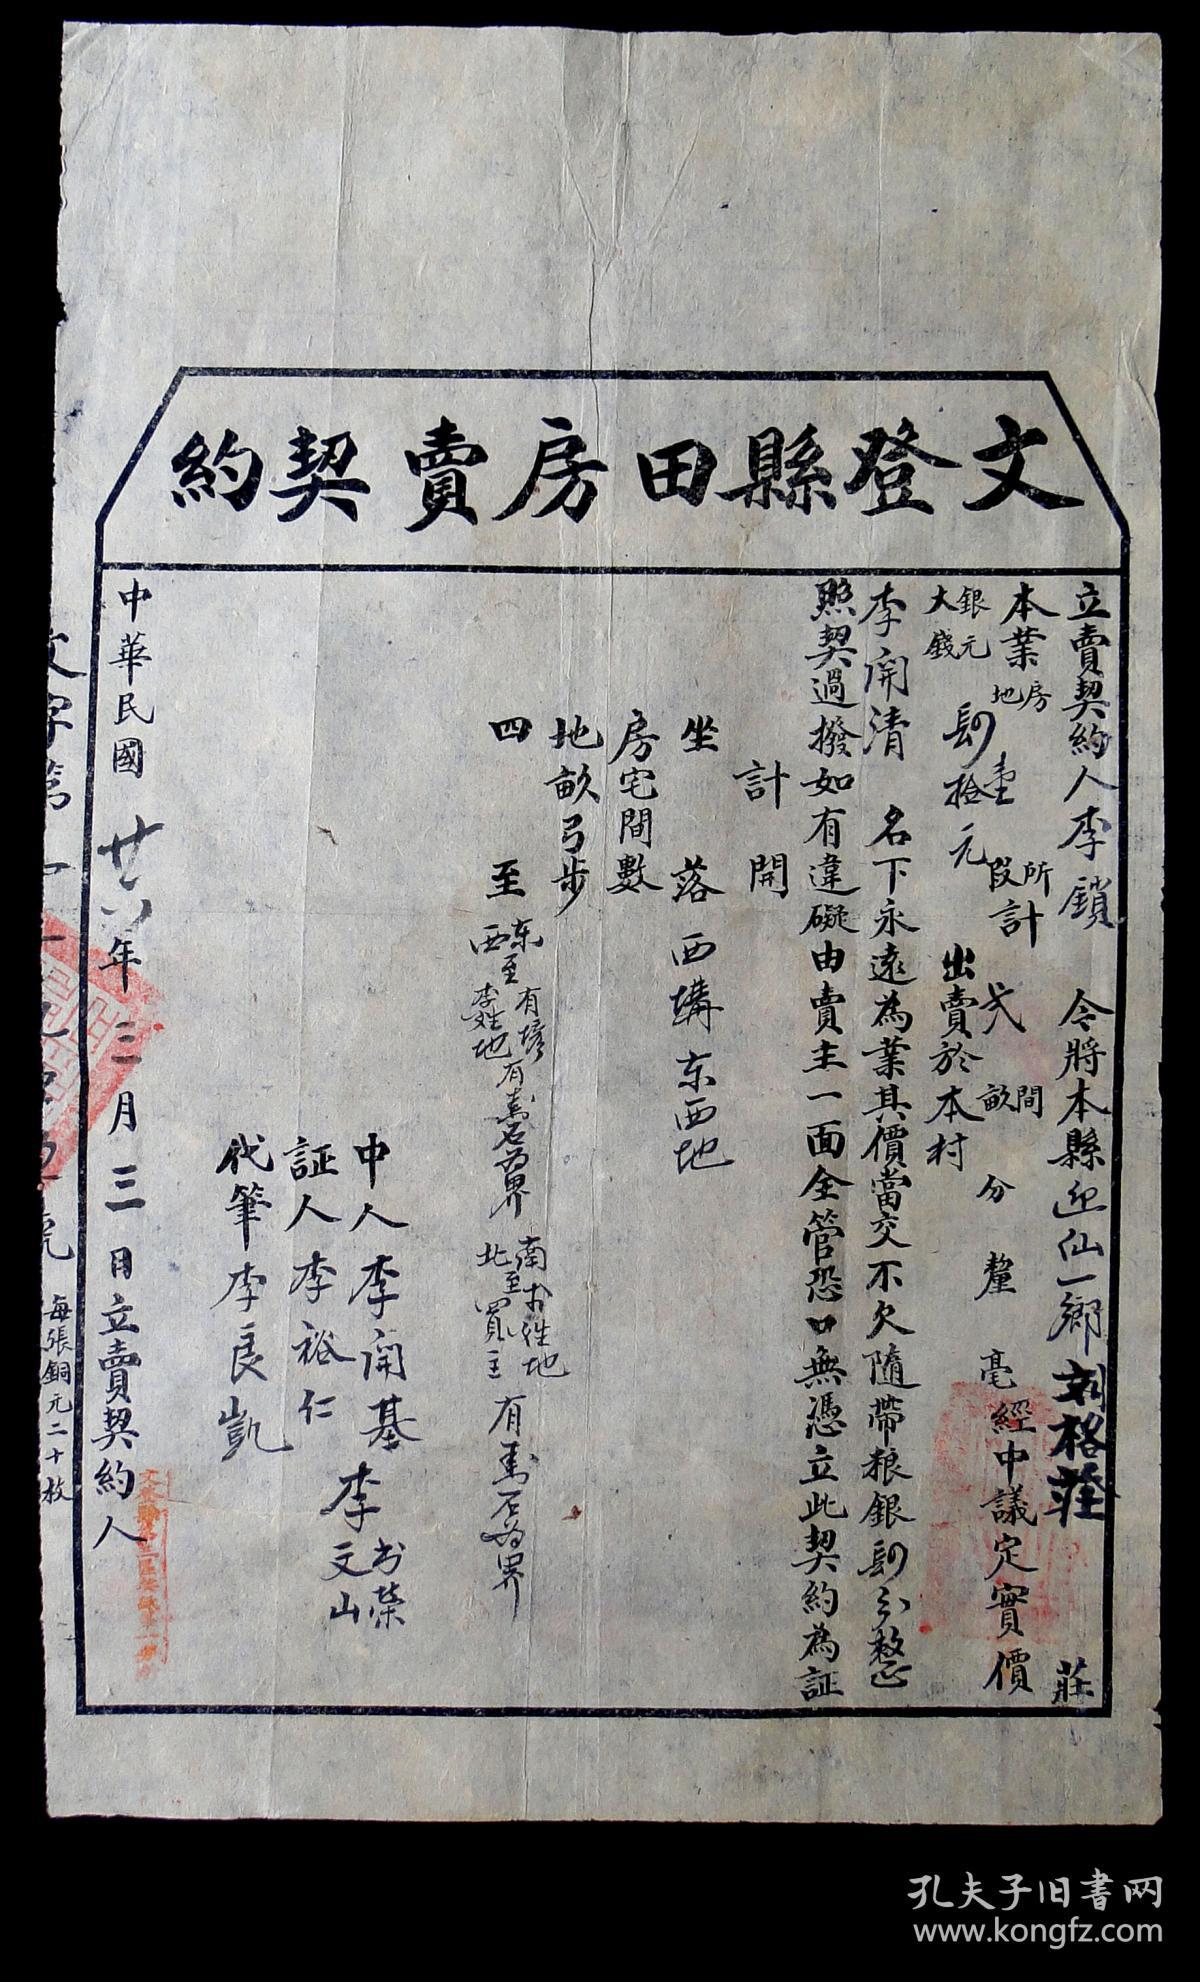 文登縣田房賣契約
立賣契約人李鎖 今將本縣迎仙一鄉刘格莊 莊
本業房地壹所段計弍間畝 分 釐 毫經中議定實價
銀元大錢 拾元 出賣於本村
李開清 名下永遠為業其價當交不欠隨帶粮銀 整
照契過撥如有違礙由賣主一面全管恐口無憑立此契約為証
計開
坐落 西墡东西地
房宅間數
地畝弓步
四至 东至有塝西至李姓地有 石為界 南 姓地北至買主有 石為界
中人李開基 李书荣文山
証人李裕仁
代筆李良凱
中華民國廿六年三月三日立賣契約人
文字第 號 每張銅元二十枚
孔夫子旧书网
www.kongfz.com